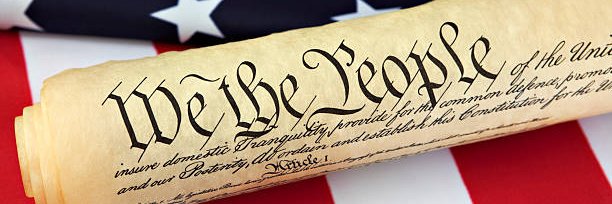 We the People of the Unite
insure domestic Tranquility, provide for the common defence, promo
and our Posterity, do ordain and establish this Constitution for the
Article I